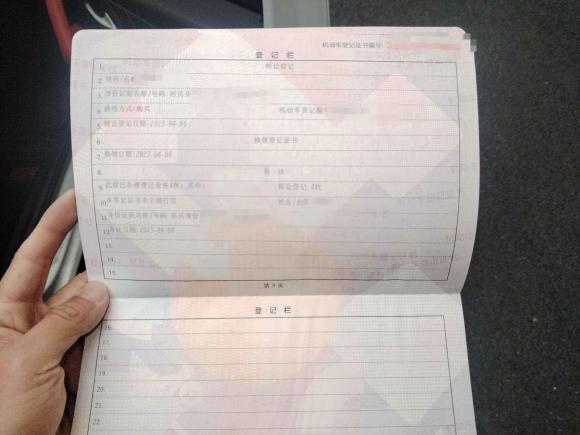 机动车登记证书编号:
登 记 栏
1. 转让登记
2. 姓名/名称
3. 身份证明名称/号码 居民身
4. 获得方式:购买 机动车登记编
5. 转让登记日期:2023-04-06
6. 换领登记证书
7. 换领日期:2023-04-06
8. 备 注
9. 此前已办理登记业务4次,其中: 转让登记:4次
10. 本登记证书未全部打印 姓名/
11. 身份证明名称/号码 居民身份
12. 登记日期:2023-04-06
13.
14.
15.
第 3 页
登 记 栏
16.
17.
18.
19.
20.
21.
22.